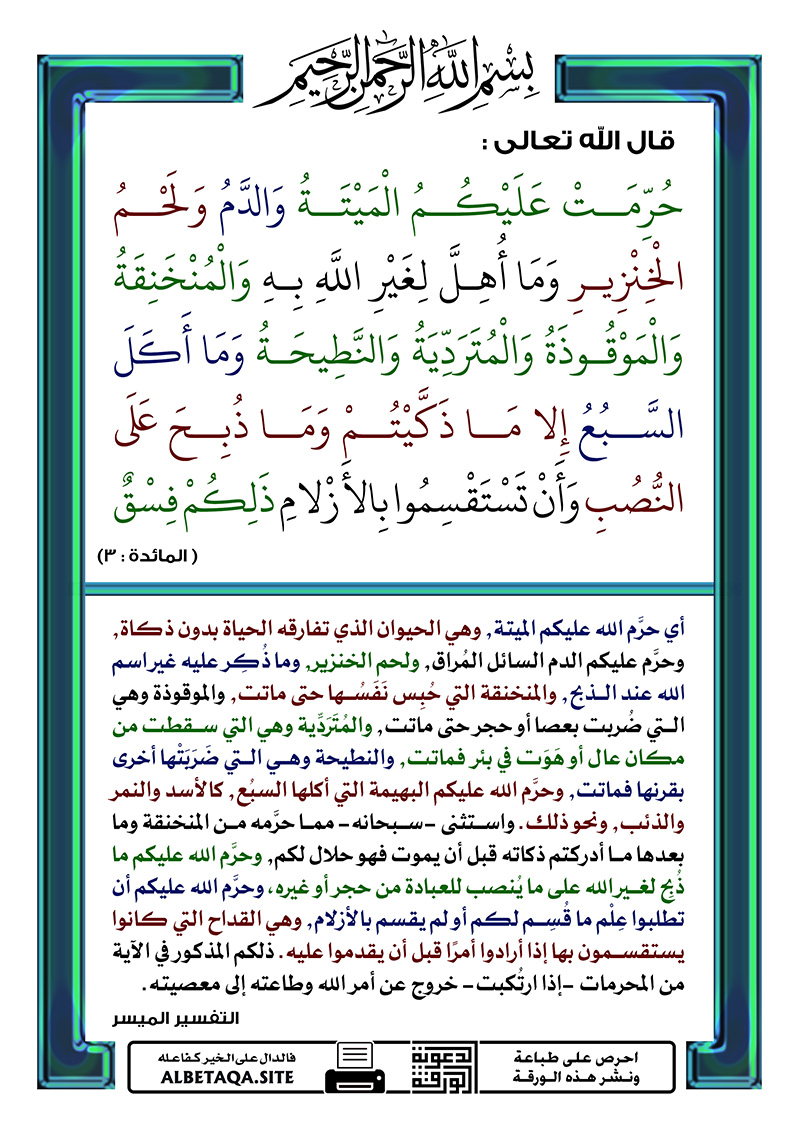 بِسْمِ اللَّهِ الرَّحْمَٰنِ الرَّحِيمِ
قال الله تعالى :
حُرِّمَتْ عَلَيْكُمُ الْمَيْتَةُ وَالدَّمُ وَلَحْمُ
الْخِنْزِيرِ وَمَا أُهِلَّ لِغَيْرِ اللَّهِ بِهِ وَالْمُنْخَنِقَةُ
وَالْمَوْقُوذَةُ وَالْمُتَرَدِّيَةُ وَالنَّطِيحَةُ وَمَا أَكَلَ
السَّبُعُ إِلا مَا ذَكَّيْتُمْ وَمَا ذُبِحَ عَلَى
النُّصُبِ وَأَنْ تَسْتَقْسِمُوا بِالأَزْلامِ ذَلِكُمْ فِسْقٌ
( المائدة : ٣)
أي حرَّم الله عليكم الميتة, وهي الحيوان الذي تفارقه الحياة بدون ذكاة,
وحرَّم عليكم الدم السائل المُراق, ولحم الخنزير, وما ذُكِر عليه غير اسم
الله عند الذبح, والمنخنقة التي حُبِس نَفَسُها حتى ماتت, والموقوذة وهي
التي ضُربت بعصا أو حجر حتى ماتت, والمُتَرَدِّية وهي التي سقطت من
مكان عال أو هَوَت في بئر فماتت, والنطيحة وهي التي ضَرَبَتْها أخرى
بقرنها فماتت, وحرَّم الله عليكم البهيمة التي أكلها السبُع, كالأسد والنمر
والذئب, ونحو ذلك. واستثنى -سبحانه- مما حرَّمه من المنخنقة وما
بعدها ما أدركتم ذكاته قبل أن يموت فهو حلال لكم, وحرَّم الله عليكم ما
ذُبِح لغير الله على ما يُنصب للعبادة من حجر أو غيره، وحرَّم الله عليكم أن
تطلبوا عِلْم ما قُسِم لكم أو لم يقسم بالأزلام, وهي القداح التي كانوا
يستقسمون بها إذا أرادوا أمرًا قبل أن يقدموا عليه. ذلكم المذكور في الآية
من المحرمات -إذا ارتُكبت- خروج عن أمر الله وطاعته إلى معصيته.
التفسير الميسر
احرص على طباعة
ونشر هذه الورقة
الورقة الدعوية
فالدال على الخير كفاعله
ALBETAQA.SITE